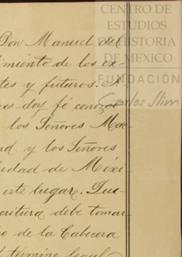 CENTRO DE
ESTUDIOS
DE HISTORIA
DE MEXICO
FUNDACIÓN
Carlos Slim
Don Manuel del
cimiento de los ex
tes y futuros. A
nes doy fé conoz
los Señores Mon
ad y los Señores
iedad de Méxi
este lugar. Que
critura debe tomar
io de la Cabecera
l término legal